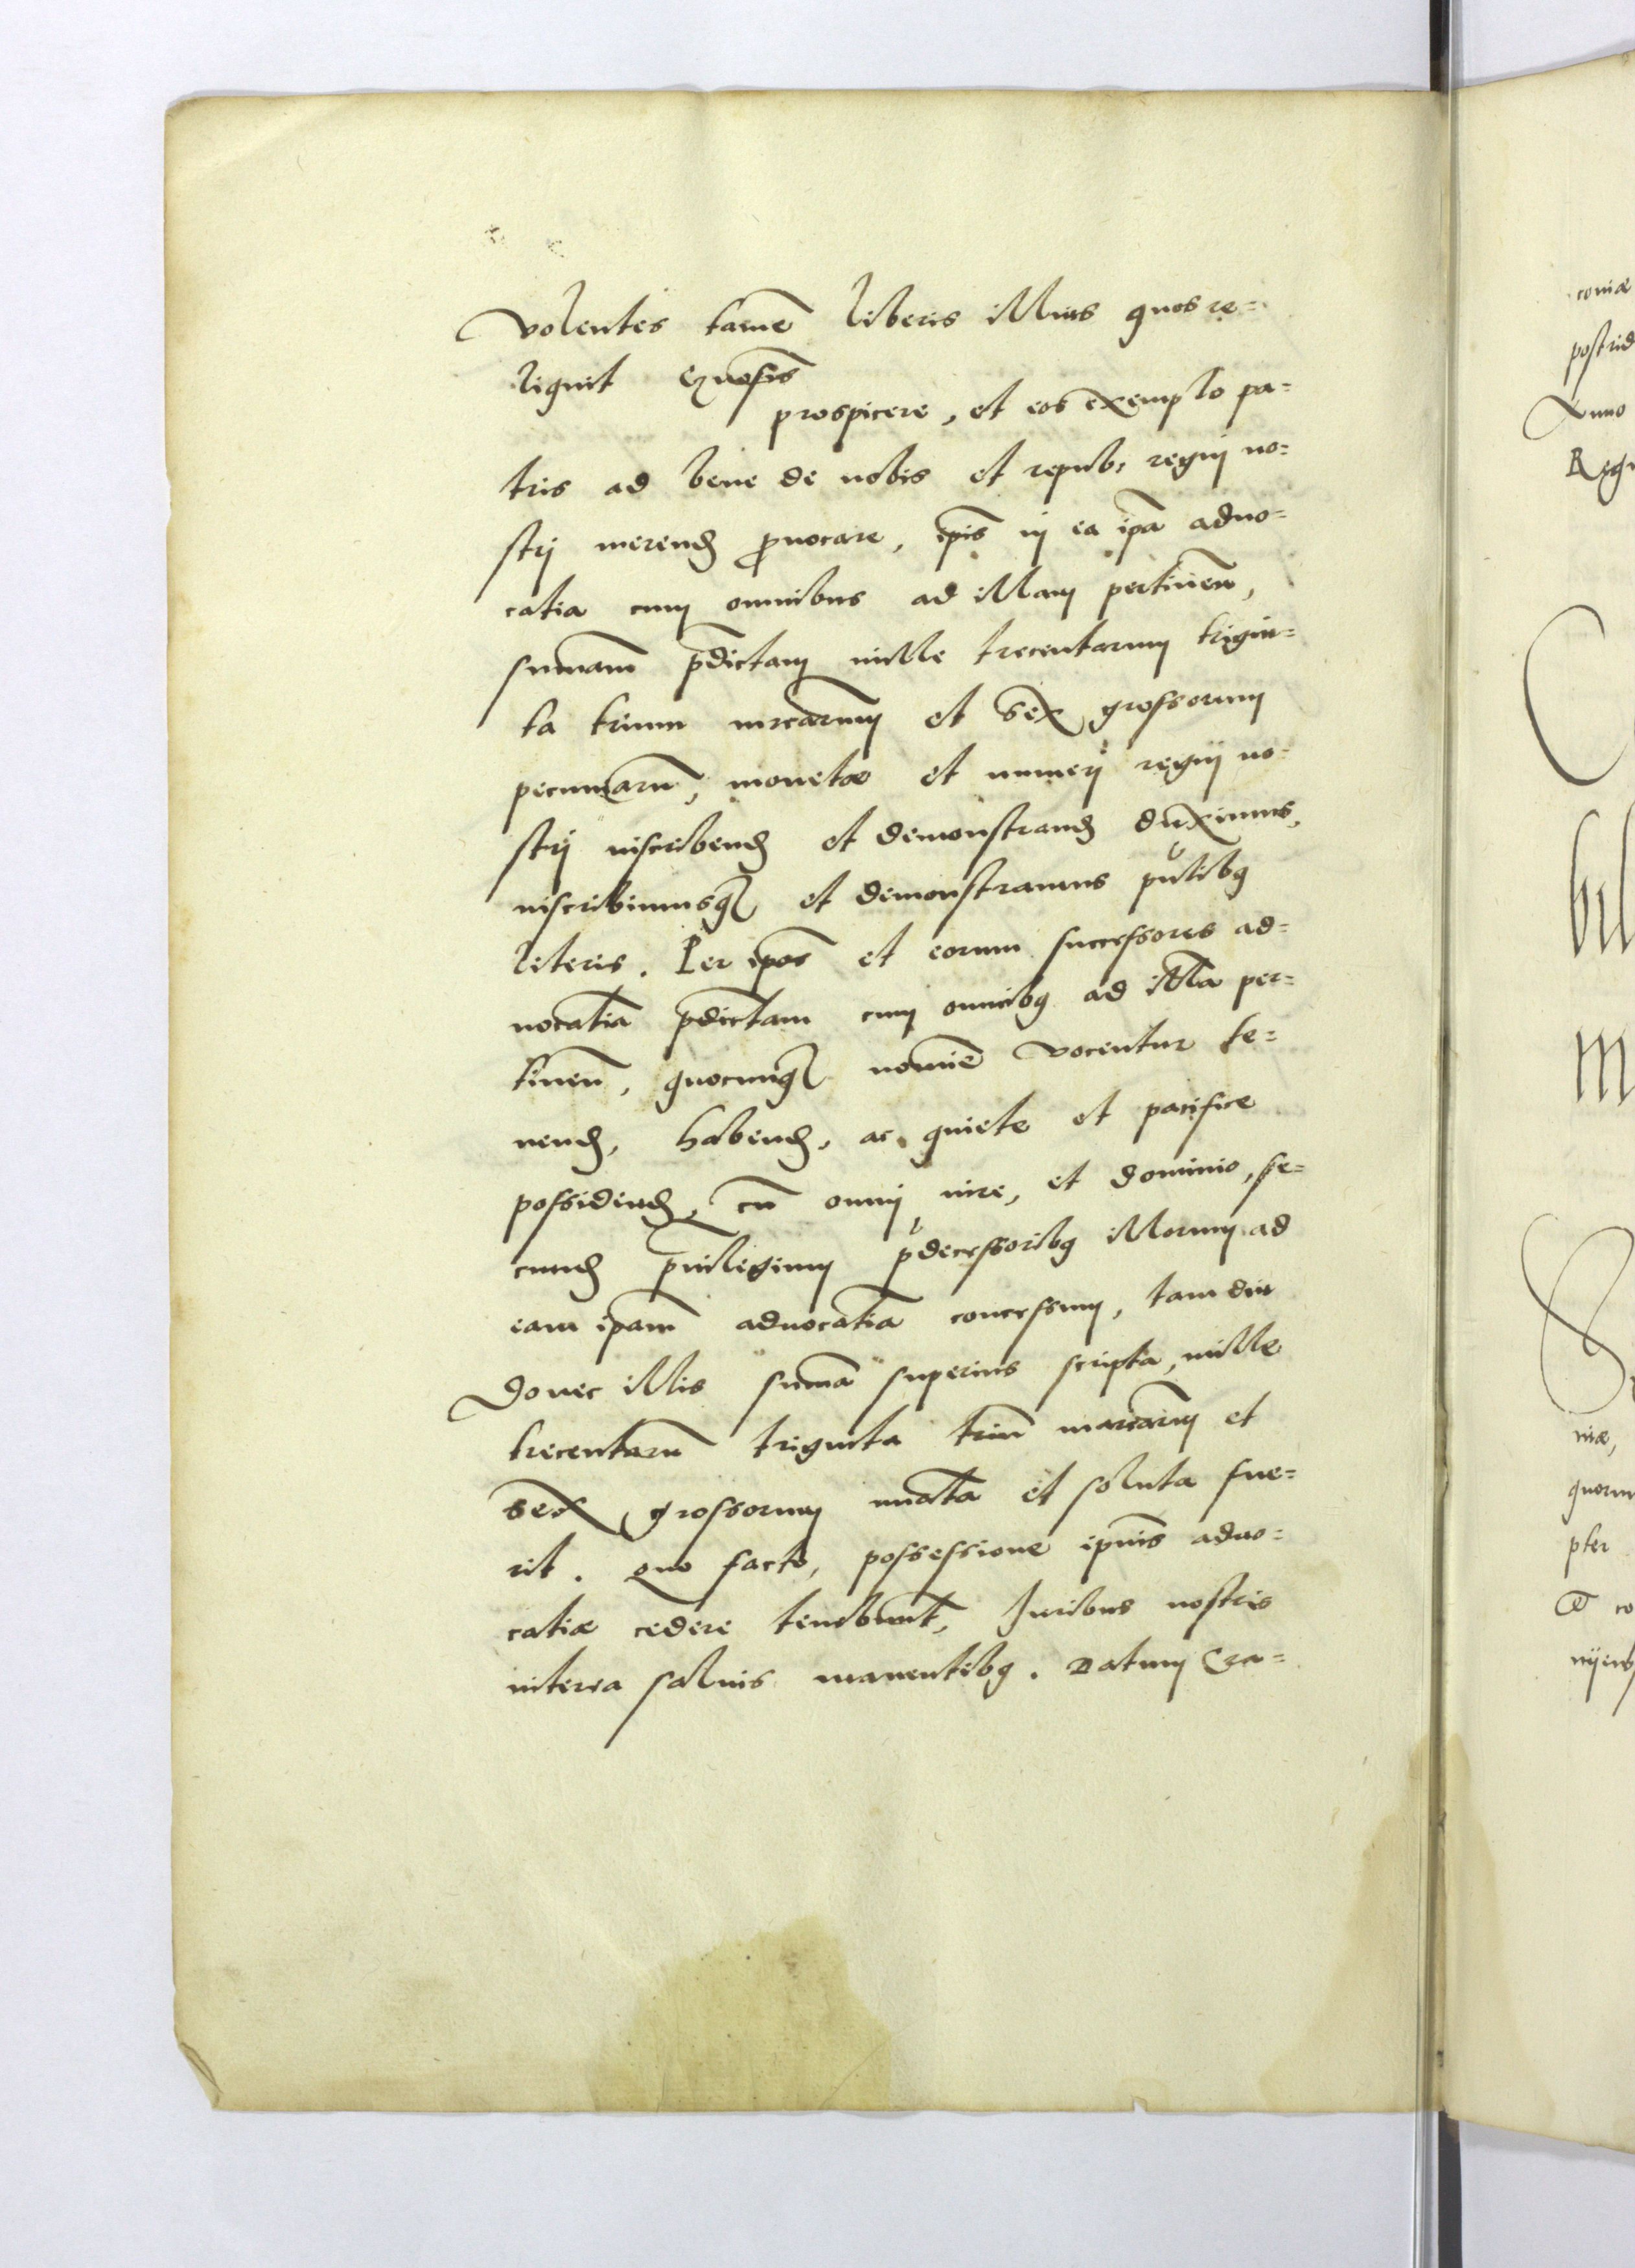 volentes tamē liberis illius quos re=
liquit
prospicere, et eos exemplo pa=
tris ad bene de nobis et repub: regnj no=
strj merend ꝓuocare, ip̄is in ea ip̄a aduo=
catia cum omnibus ad illam pertineñ,
sum̄am p̄dictam mille trecentarum trigin=
ta trium mrcarum et sex grossorum
pecuniarū, monetæ et numerj regnj no=
strj inscribend et demonstrand duximus,
inscribimusq et demonstramus pn̄tibꝯ
literis. Per ip̄os et eorum successores ad=
uocatiā p̄dictam cum omnibꝯ ad illā per=
tineñ, quocunq nomīe vocentur te=
nend, habend, ac quiete et pacifice
possidend, cū omni iure, et dominio, se=
cund priuilegium p̄decessoribꝯ illorum ad
eam ip̄am aduocatiā concessum, tam diu
donec illis summa superius scripta, mille
trecentarū triginta triū marcarum et
sex grossorum nūata et soluta fue=
rit. Quo facto, possessione ipsius aduo=
catiæ cedere tenebunt̄, Juribus nostris
interea saluis manentibꝯ. Datum Cra=
coniæ
postrid
Anno
Reg
bil
m
niæ,
quorum
pter
et co